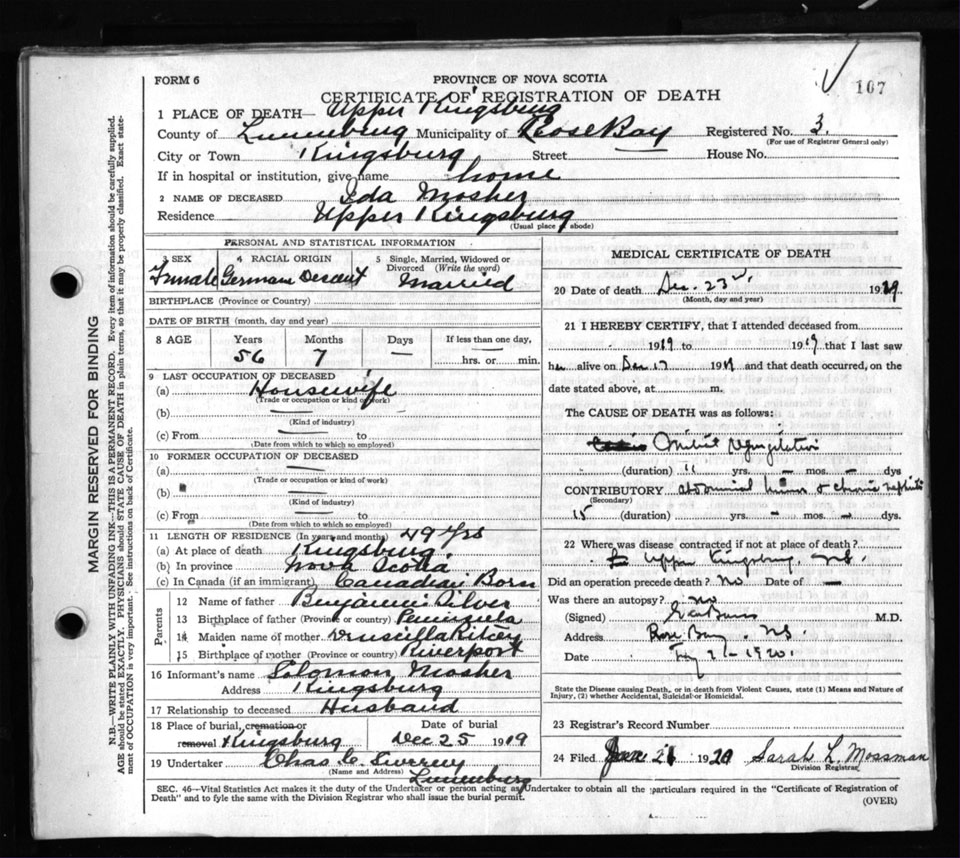 FORM 6
PROVINCE OF NOVA SCOTIA
CERTIFICATE OF REGISTRATION OF DEATH
107
1 PLACE OF DEATH— Upper Kingsburg
County of Lunenburg Municipality of Rose Bay Registered No. 3.
(For use of Registrar General only)
City or Town Kingsburg Street House No.
If in hospital or institution, give name home
2 NAME OF DECEASED Ida Mosher
Residence Upper Kingsburg
(Usual place of abode)
PERSONAL AND STATISTICAL INFORMATION
3 SEX 4 RACIAL ORIGIN 5 Single, Married, Widowed or Divorced (Write the word)
Female German Descent Married
BIRTHPLACE (Province or Country)
DATE OF BIRTH (month, day and year)
8 AGE Years Months Days If less than one day,
56 7 — hrs. or min.
9 LAST OCCUPATION OF DECEASED
(a) Housewife
(Trade or occupation or kind of work)
(b) —
(Kind of industry)
(c) From — to
(Date from which to which so employed)
10 FORMER OCCUPATION OF DECEASED
(a) —
(Trade or occupation or kind of work)
(b) —
(Kind of industry)
(c) From — to
(Date from which to which so employed)
11 LENGTH OF RESIDENCE (In years and months) 49 Yrs
(a) At place of death Kingsburg
(b) In province Nova Scotia
(c) In Canada (if an immigrant) Canadian Born
Parents
12 Name of father Benjamin Silver
13 Birthplace of father (Province or country)
14 Maiden name of mother Druscilla Ritcey
15 Birthplace of mother (Province or country) Riverport
16 Informant's name Solomon Mosher
Address Kingsburg
17 Relationship to deceased Husband
18 Place of burial, cremation or removal Kingsburg Date of burial Dec 25 1919
19 Undertaker Chas C. Sweeny
(Name and Address) Lunenburg
MEDICAL CERTIFICATE OF DEATH
20 Date of death Dec. 23 1919
(Month, day and year)
21 I HEREBY CERTIFY, that I attended deceased from
1919 to 1919 that I last saw
her alive on Dec 17 1919 and that death occurred, on the
date stated above, at m.
The CAUSE OF DEATH was as follows:
Mitral regurgitation
(duration) 11 yrs. — mos. — dys
CONTRIBUTORY abdominal & chronic nephritis
(Secondary)
15 (duration) yrs. — mos. — dys.
22 Where was disease contracted if not at place of death?
Upper Kingsburg, N.S.
Did an operation precede death? No Date of —
Was there an autopsy? no
(Signed) M.D.
Address Rose Bay, N.S.
Date 1920.
State the Disease causing Death, or in death from Violent Causes, state (1) Means and Nature of
Injury, (2) whether Accidental, Suicidal or Homicidal.
23 Registrar's Record Number
24 Filed Jan 21 1920 Sarah L. Mossman
Division Registrar
SEC. 46—Vital Statistics Act makes it the duty of the Undertaker or person acting as Undertaker to obtain all the particulars required in the "Certificate of Registration of
Death" and to fyle the same with the Division Registrar who shall issue the burial permit.
(OVER)
MARGIN RESERVED FOR BINDING
N.B.—WRITE PLAINLY WITH UNFADING INK—THIS IS A PERMANENT RECORD. Every item of information should be carefully supplied.
AGE should be stated EXACTLY. PHYSICIANS should STATE CAUSE OF DEATH in plain terms, so that it may be properly classified. Exact state-
ment of OCCUPATION is very important. See instructions on back of Certificate.